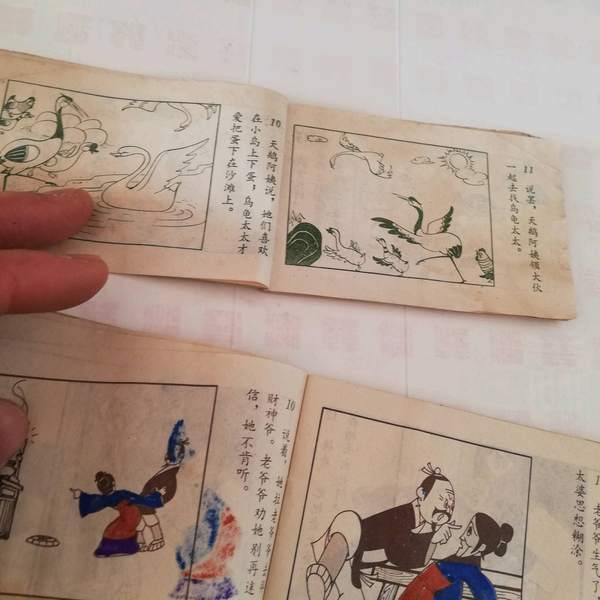 10 天鹅阿姨说，她们喜欢
在小岛上下蛋；乌龟太太才
爱把蛋下在沙滩上。
11 说罢，天鹅阿姨领大伙
一起去找乌龟太太。
10 说着，她拉老爷爷去拜
财神爷。老爷爷劝她别再迷
信，她不肯听。
老爷爷生气了
太婆思想糊涂。